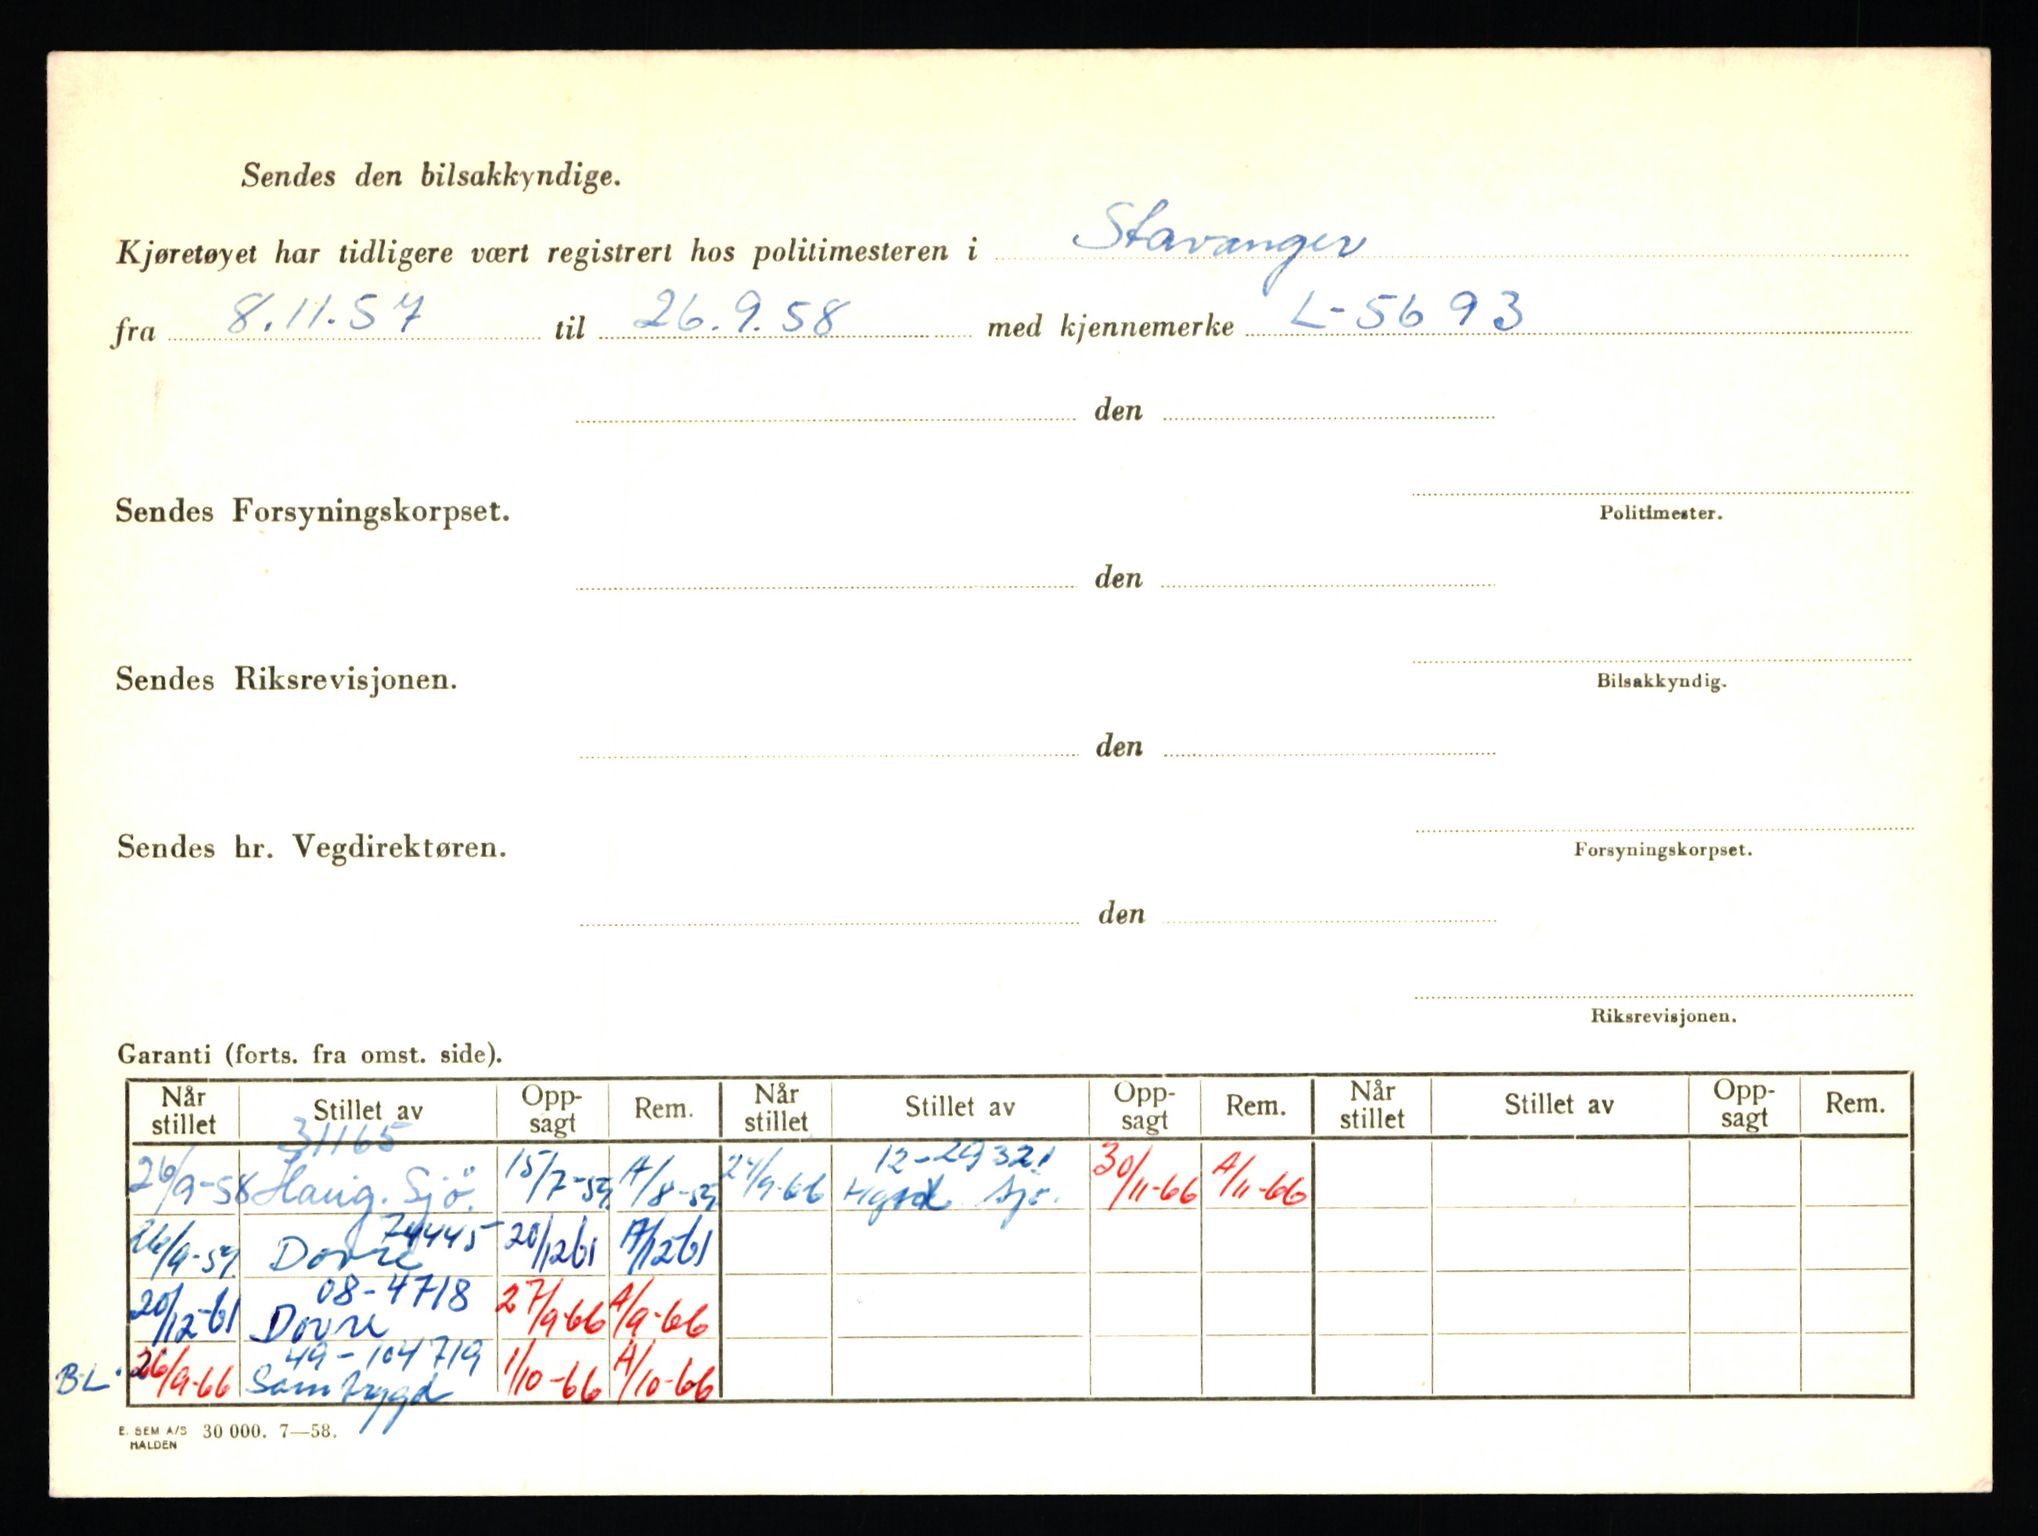 Sendes den bilsakkyndige.
Kjøretøyet har tidligere vært registrert hos politimesteren i Stavanger
fra 8.11.57 til 26.9.58 med kjennemerke L-5693
den
Sendes Forsyningskorpset.
Politimester.
den
Sendes Riksrevisjonen.
Bilsakkyndig.
den
Sendes hr. Vegdirektøren.
Forsyningskorpset.
den
Riksrevisjonen.
Garanti (forts. fra omst. side).
Når stillet Stillet av Opp-sagt Rem. Når stillet Stillet av Opp-sagt Rem. Når stillet Stillet av Opp-sagt Rem.
31165 12-29321
26/9-58 Haug. Sjö. 15/7-59 A/8-59 24/9-66 Sjö. 30/11-66 A/11-66
74445
26/9-59 Dovre 20/12 61 A/12-61
08-4718
20/12-61 Dovre 27/9-66 A/9-66
49-104719
B.L. 26/9-66 Samtrygd 1/10-66 A/10-66
E. SEM A/S HALDEN 30 000. 7—58.